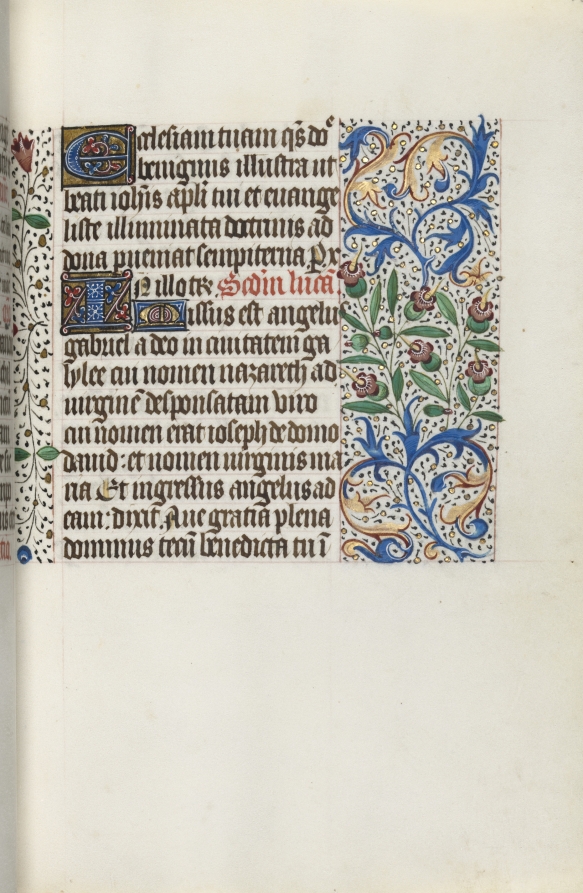 Ecclesiam tuam qs̄ do͂e
benignus illustra ut
beati ioh̄is ap̄li tui et euange
liste illuminata doctrinis ad
dona pueniat sempiterna Px
In illo tp̄r Scd̄m lucā
Missus est angelus
gabriel a deo in ciuitatem ga
lylee cui nomen nazareth ad
uirginē desponsatam viro
cui nomen erat ioseph de domo
dauid et nomen uirginis ma
ria Et ingressus angelus ad
eam: dixit Aue gratia plena
dominus tecū benedicta tu ī